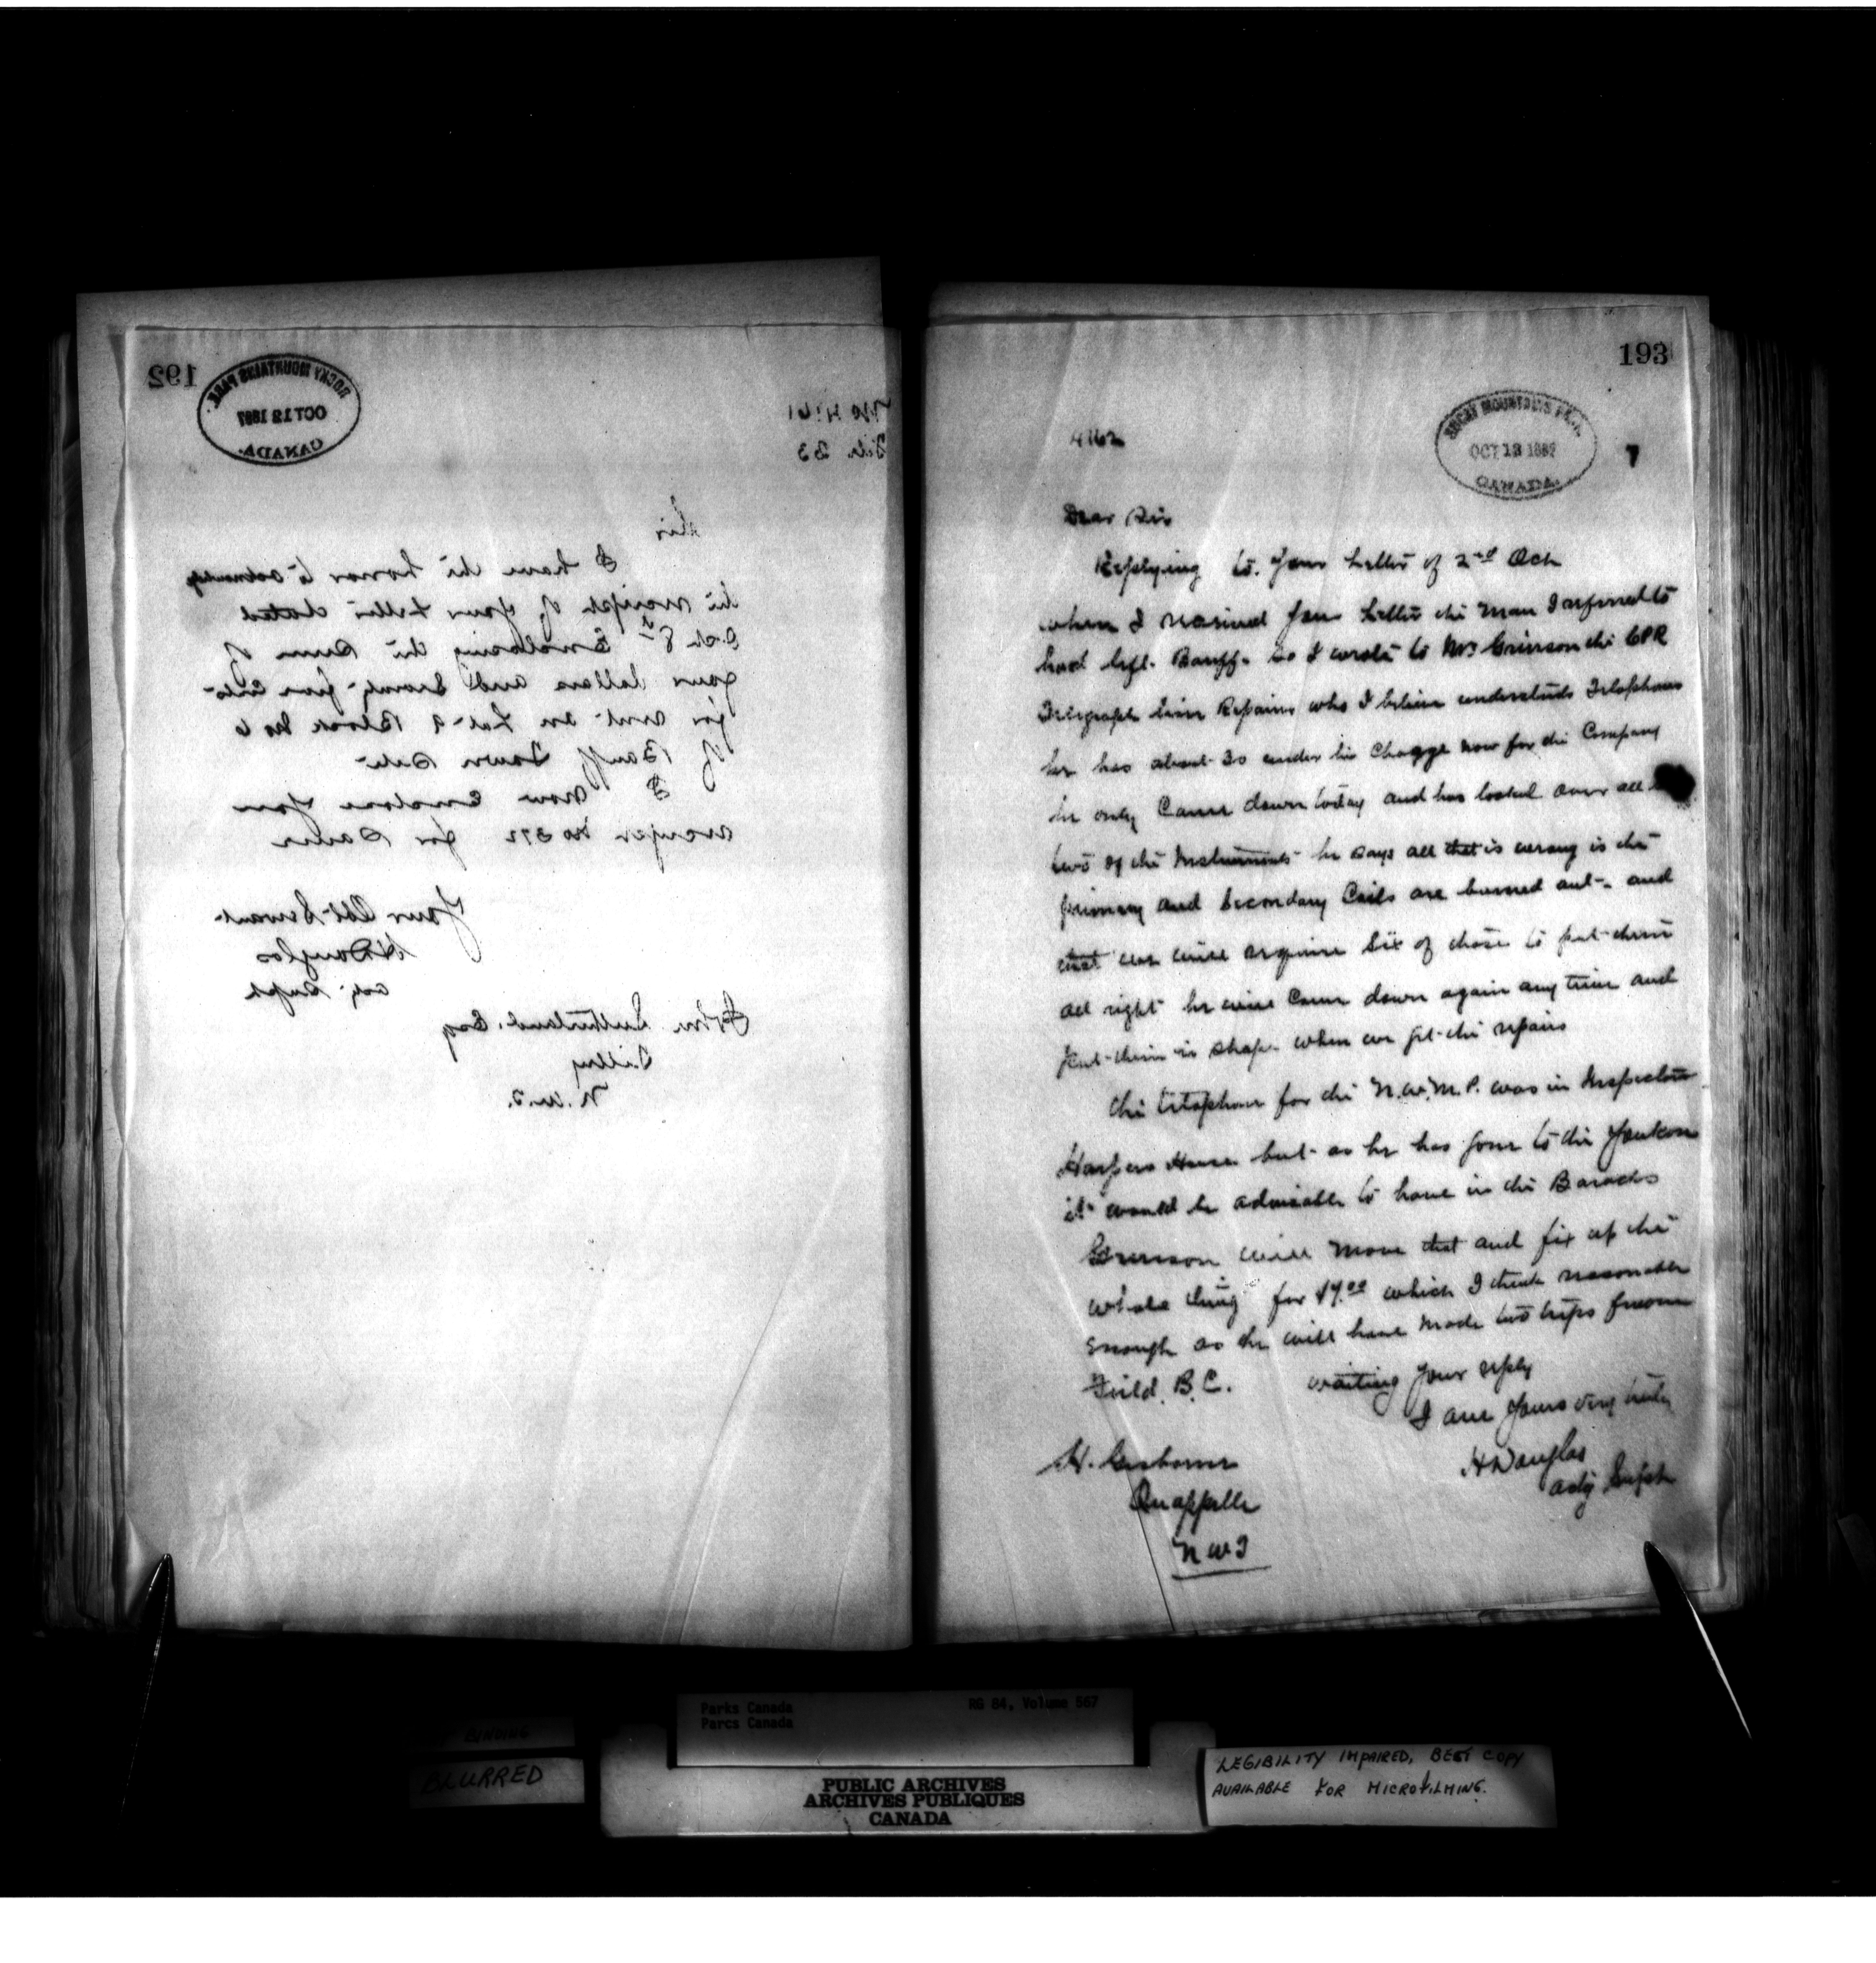 192
ROCKY MOUNTAINS PARK
OCT 12 1897
CANADA.
No 4161
File 33
Sir
I have the honor to acknowledge
the receipt of your letter dated
Oct 8th Enclosing the sum of
four dollars and Seventy five Cts
for rent on Lot 9 Block No 6
of Banff Town Site
I now Enclose you
receipt No 372 for same
Your Obt Servant
H Douglas
Actg Supt
John Sutherland. Esq
Tilley
N.W.T.
193
4162
ROCKY MOUNTAINS PARK
OCT 12 1897
CANADA.
7
Dear Sir
Replying to. your letter of 2nd Oct
when I received your letter the man I referred to
had left Banff so I wrote to Mr the CPR
Telegraph line Repairer who I believe understands Telephones
he has about 30 under his Chagge now for the Company
he only Came down today and has looked over all
two of the Instruments he says all that is wrong is the
primary and Secondary Coils are burned out and
that we will require Six of these to put them
all right he will Come down again any time and
put them in shape when we get the repairs
The telephone for the N.W.M.P. was in Inspectors
Harpers House but as he has gone to the Youkon
it would be advisable to have in the Baracks
will move that and fix up the
whole thing for $7.00 which I think reasonable
enough as he will have made two trips from
Field. B.C. waiting your reply
I am yours very truly
H Douglas
actg Supt
H. Gisborne
Quappelle
N W T
BINDING
BLURRED
Parks Canada
Parcs Canada
RG 84, Volume 567
PUBLIC ARCHIVES
ARCHIVES PUBLIQUES
CANADA
LEGIBILITY IMPAIRED, BEST COPY
AVAILABLE FOR MICROFILMING.